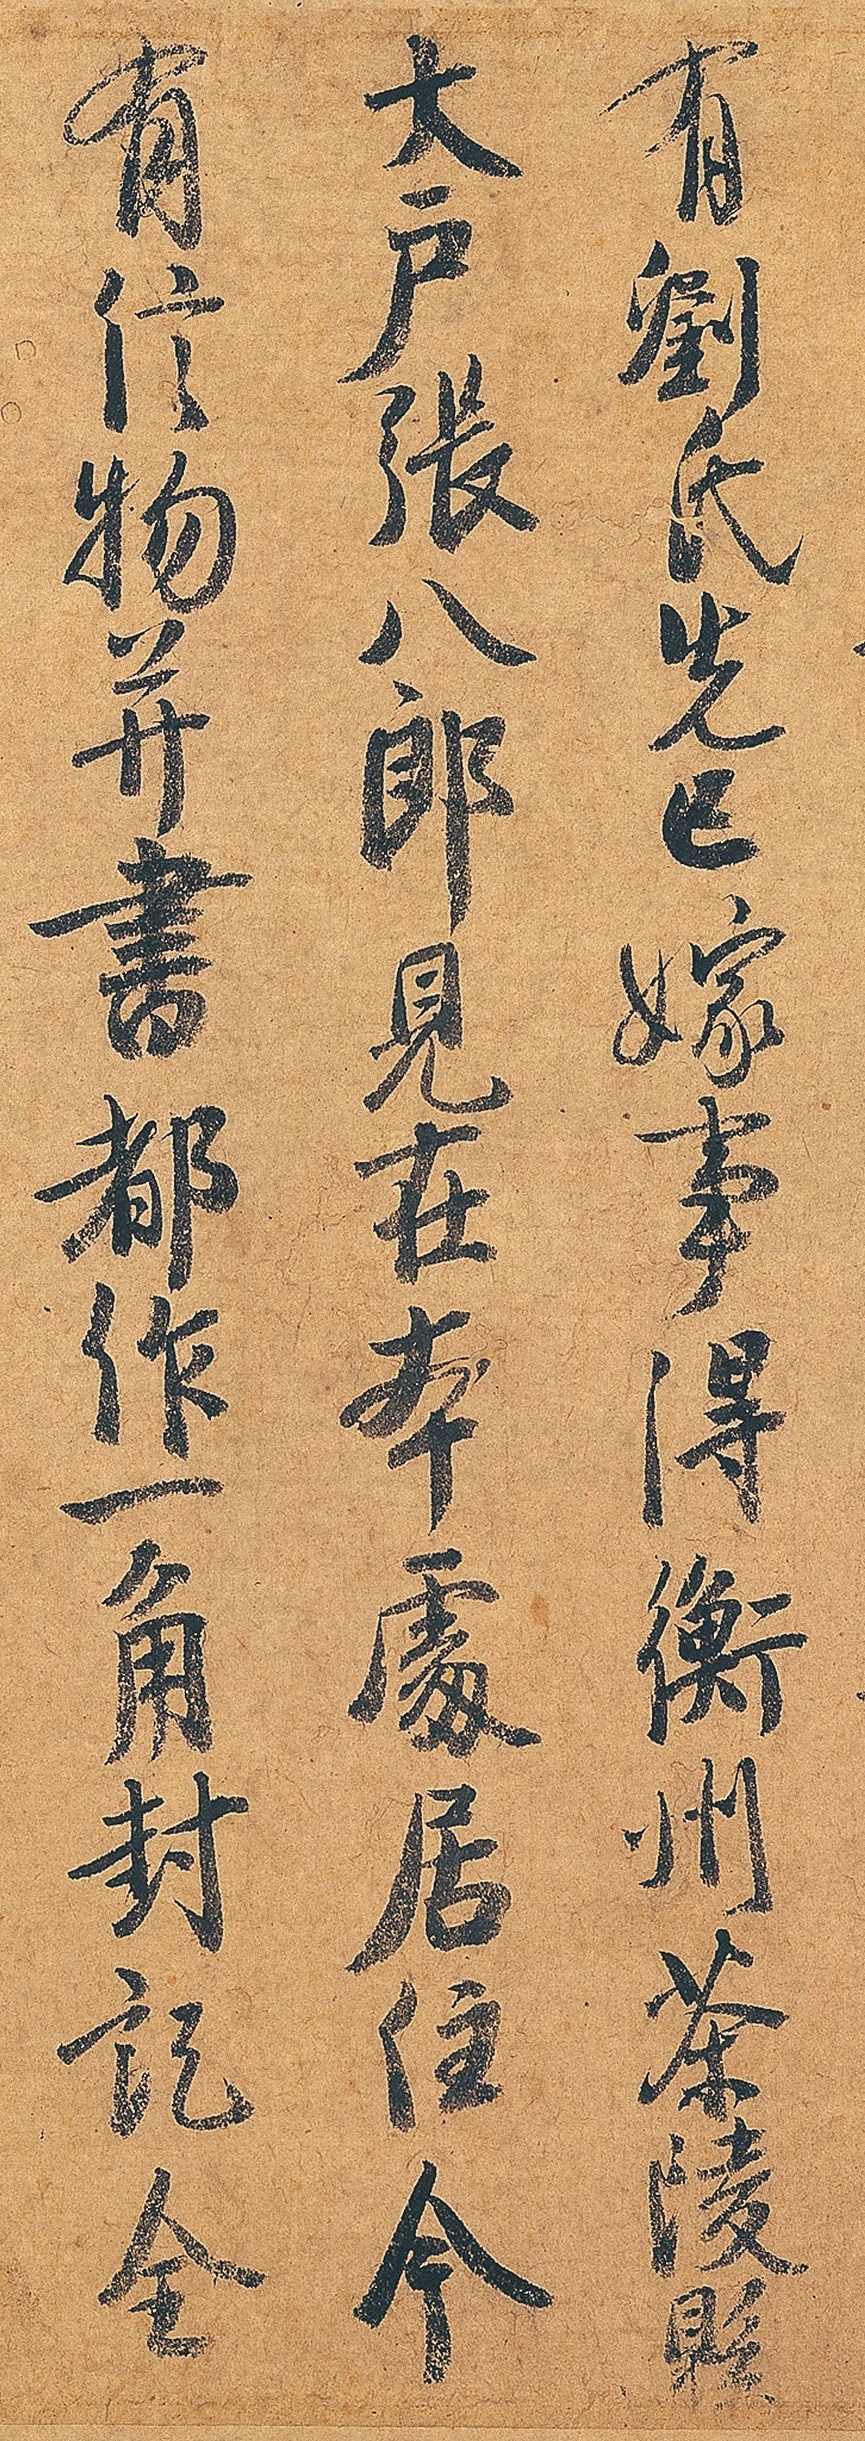 有劉氏先已嫁事得衡州茶陵縣
大戶張八郎見在本處居住今
有信物并書都作一角封記全